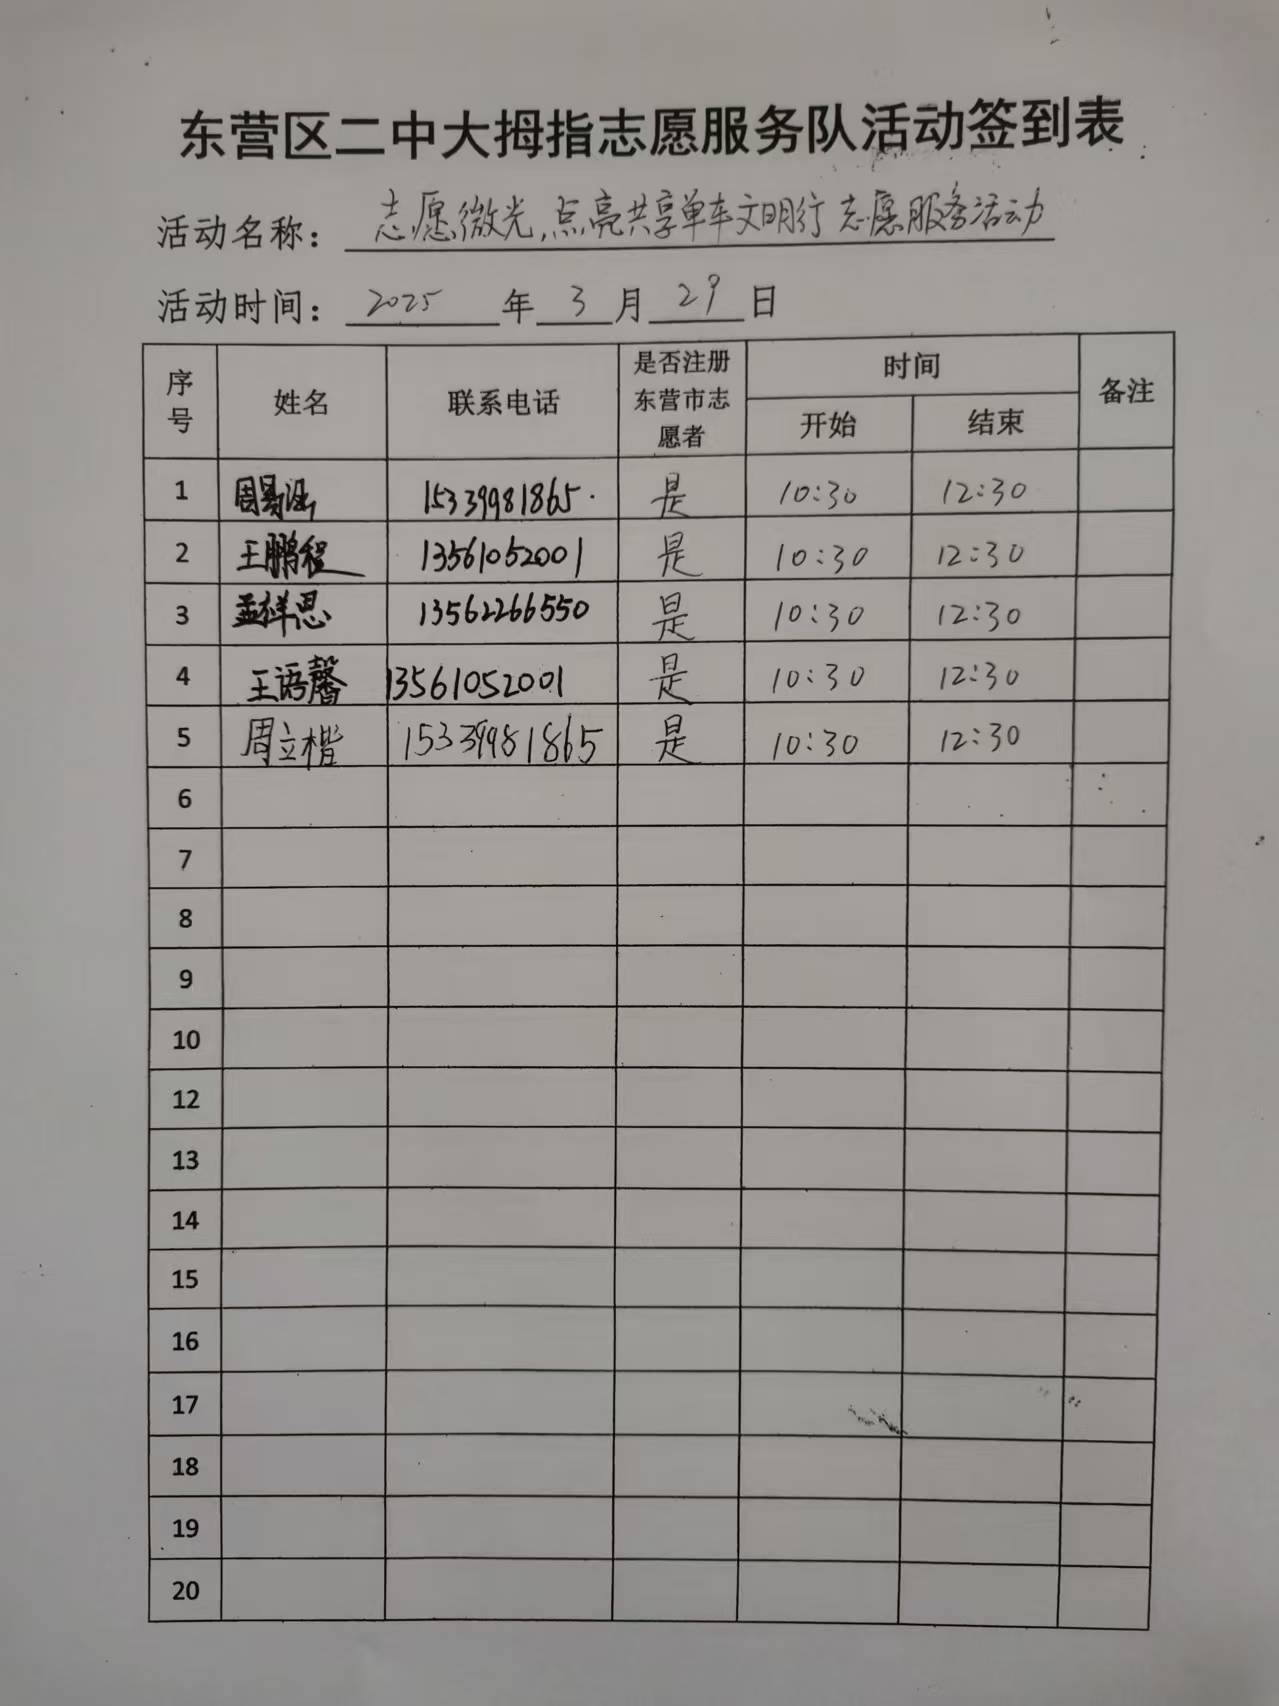 东营区二中大拇指志愿服务队活动签到表
活动名称：志愿微光，点亮共享单车文明行 志愿服务活动
活动时间：2025年3月29日
序号 姓名 联系电话 是否注册东营市志愿者 时间 备注
开始 结束
1 周易涵 15339981865. 是 10:30 12:30
2 王鹏程 13561052001 是 10:30 12:30
3 孟祥恩 13562266550 是 10:30 12:30
4 王语馨 13561052001 是 10:30 12:30
5 周立楷 15339981865 是 10:30 12:30
6
7
8
9
10
12
13
14
15
16
17
18
19
20